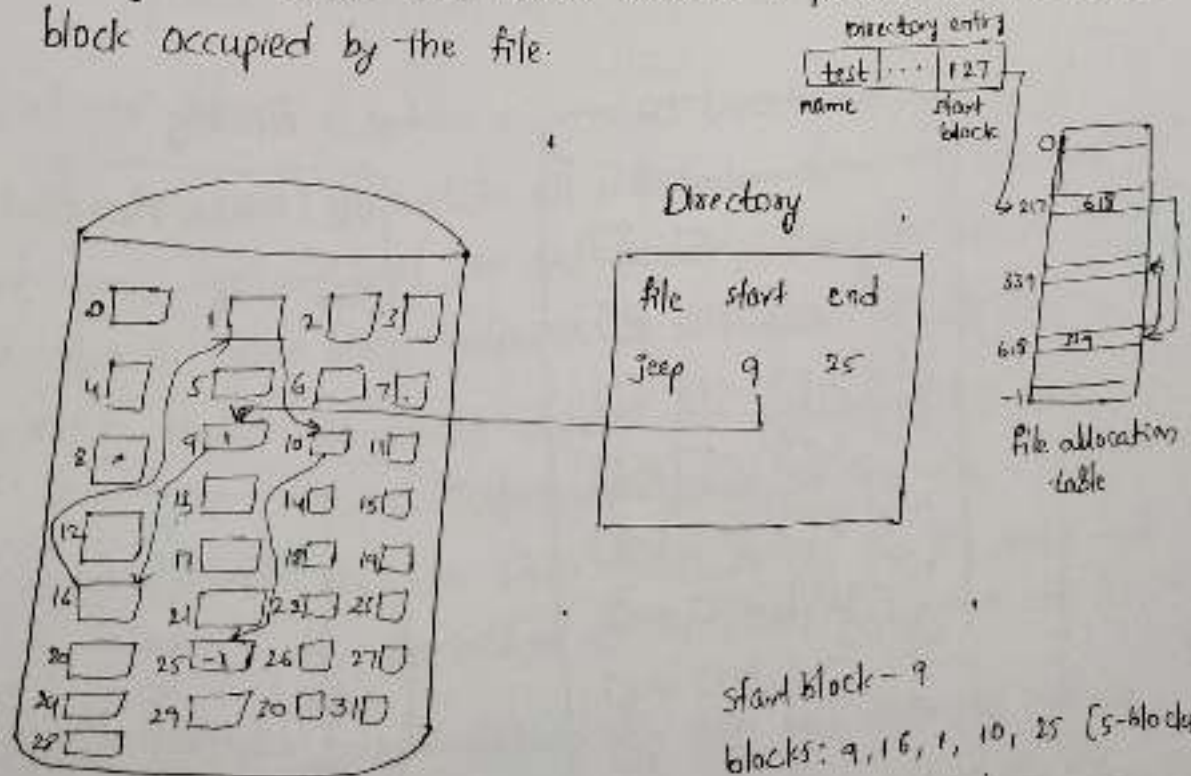 block occupied by the file.
Directory entry
test ... 127
name start block
0
217 618
339
618 339
-1
file allocation table
Directory
file start end
jeep 9 25
0 1 2 3
4 5 6 7
8 9 1 10 11
12 13 14 15
16 17 18 19
20 21 22 23
24 25 -1 26 27
28 29 30 31
start block - 9
blocks: 9, 16, 1, 10, 25 (5-blocks